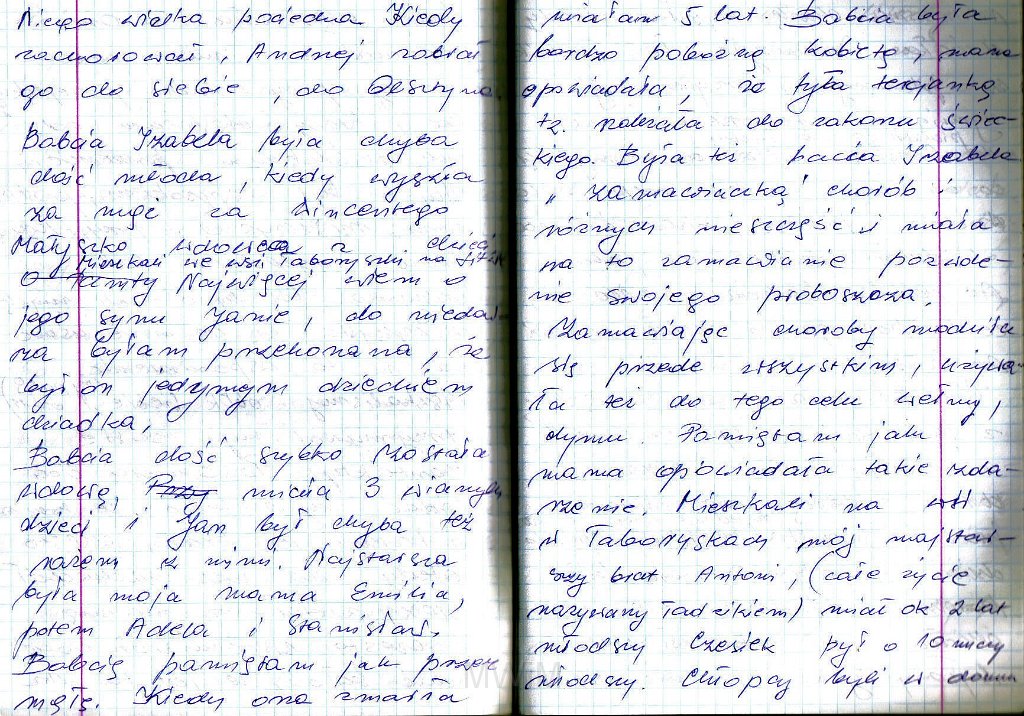 Niego wielka pociecha Kiedy
zachorował, Andrzej zabrał
go do siebie, do Olsztyna.
Babcia Izabela była chyba
dość młoda, kiedy wyszła
za mąż za Wincentego
Małyszko wdowca z dziećmi
Mieszkali we wsi Taboryszki na
o Najwięcej wiem o
jego synu Janie, do niedaw-
na byłam przekonana, że
był on jedynym dzieckiem
dziadka.
Babcia dość szybko została
wdową, Przy miała 3 własnych
dzieci i Jan był chyba też
razem z nimi. Najstarsza
była moja mama Emilia,
potem Adela i Stanisław.
Babcię pamiętam jak przez
mgłę. Kiedy ona zmarła
miałam 5 lat. Babcia była
bardzo pobożną kobietą, mama
opowiadała, że była tercjanką
tz. należała do zakonu świec-
kiego. Była też babcia Izabela
„zamawiaczką" chorób i
różnych nieszczęść i miała
na to zamawianie pozwole-
nie swojego proboszcza.
Zamawiając choroby modliła
się przede wszystkim, używa-
ła też do tego celu wełny,
dymu. Pamiętam jak
mama opowiadała takie zda-
rzenie. Mieszkali na wsi
w Taboryszkach mój najstar-
szy brat Antoni, (całe życie
nazywany Tadzikiem) miał ok 2 lat
młodszy Czesiek był o 10 mcy
młodszy. Chłopcy byli w domu